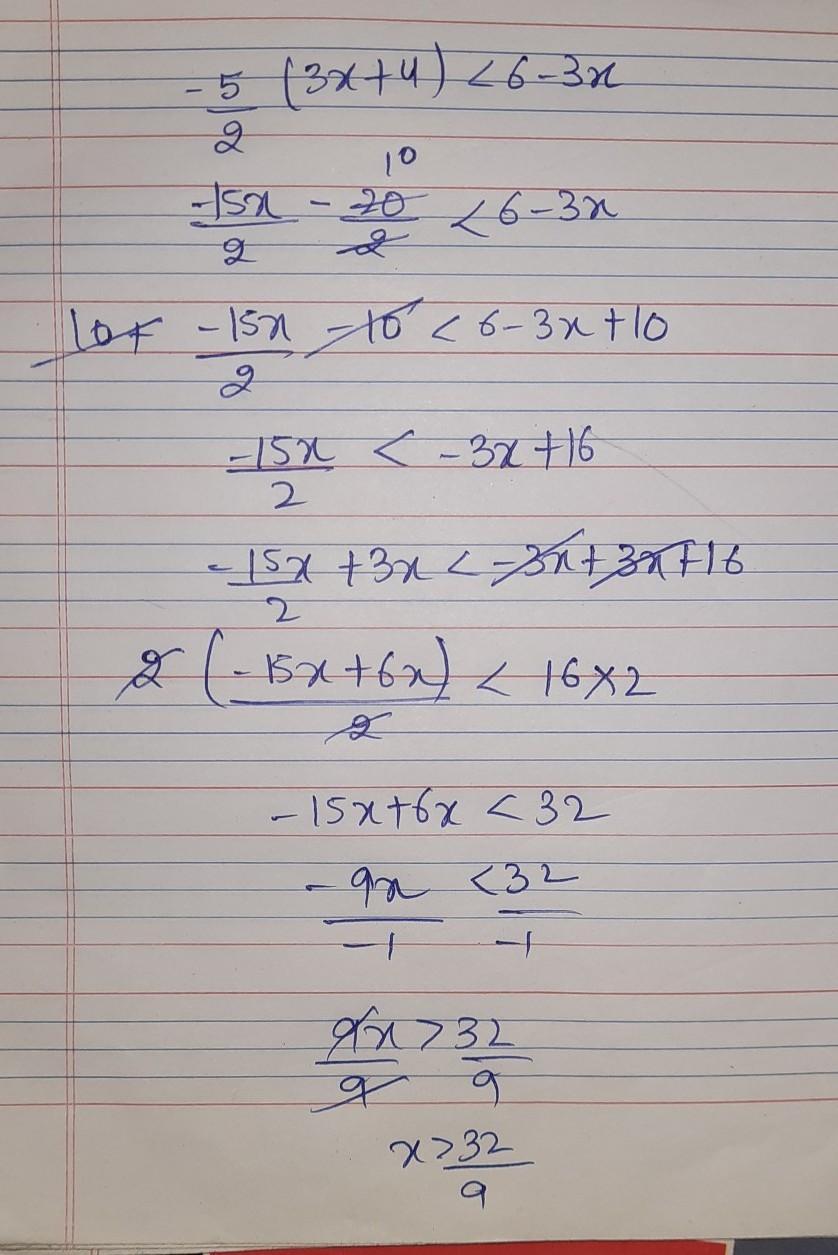 -5/2 (3x+4) < 6-3x
-15x/2 - 20/2 < 6-3x 10
10+ -15x/2 -10 < 6-3x+10
-15x/2 < -3x+16
-15x/2 +3x < -3x+3x+16
2 (-15x+6x)/2 < 16×2
-15x+6x < 32
-9x/-1 < 32/-1
9x/9 > 32/9
x > 32/9